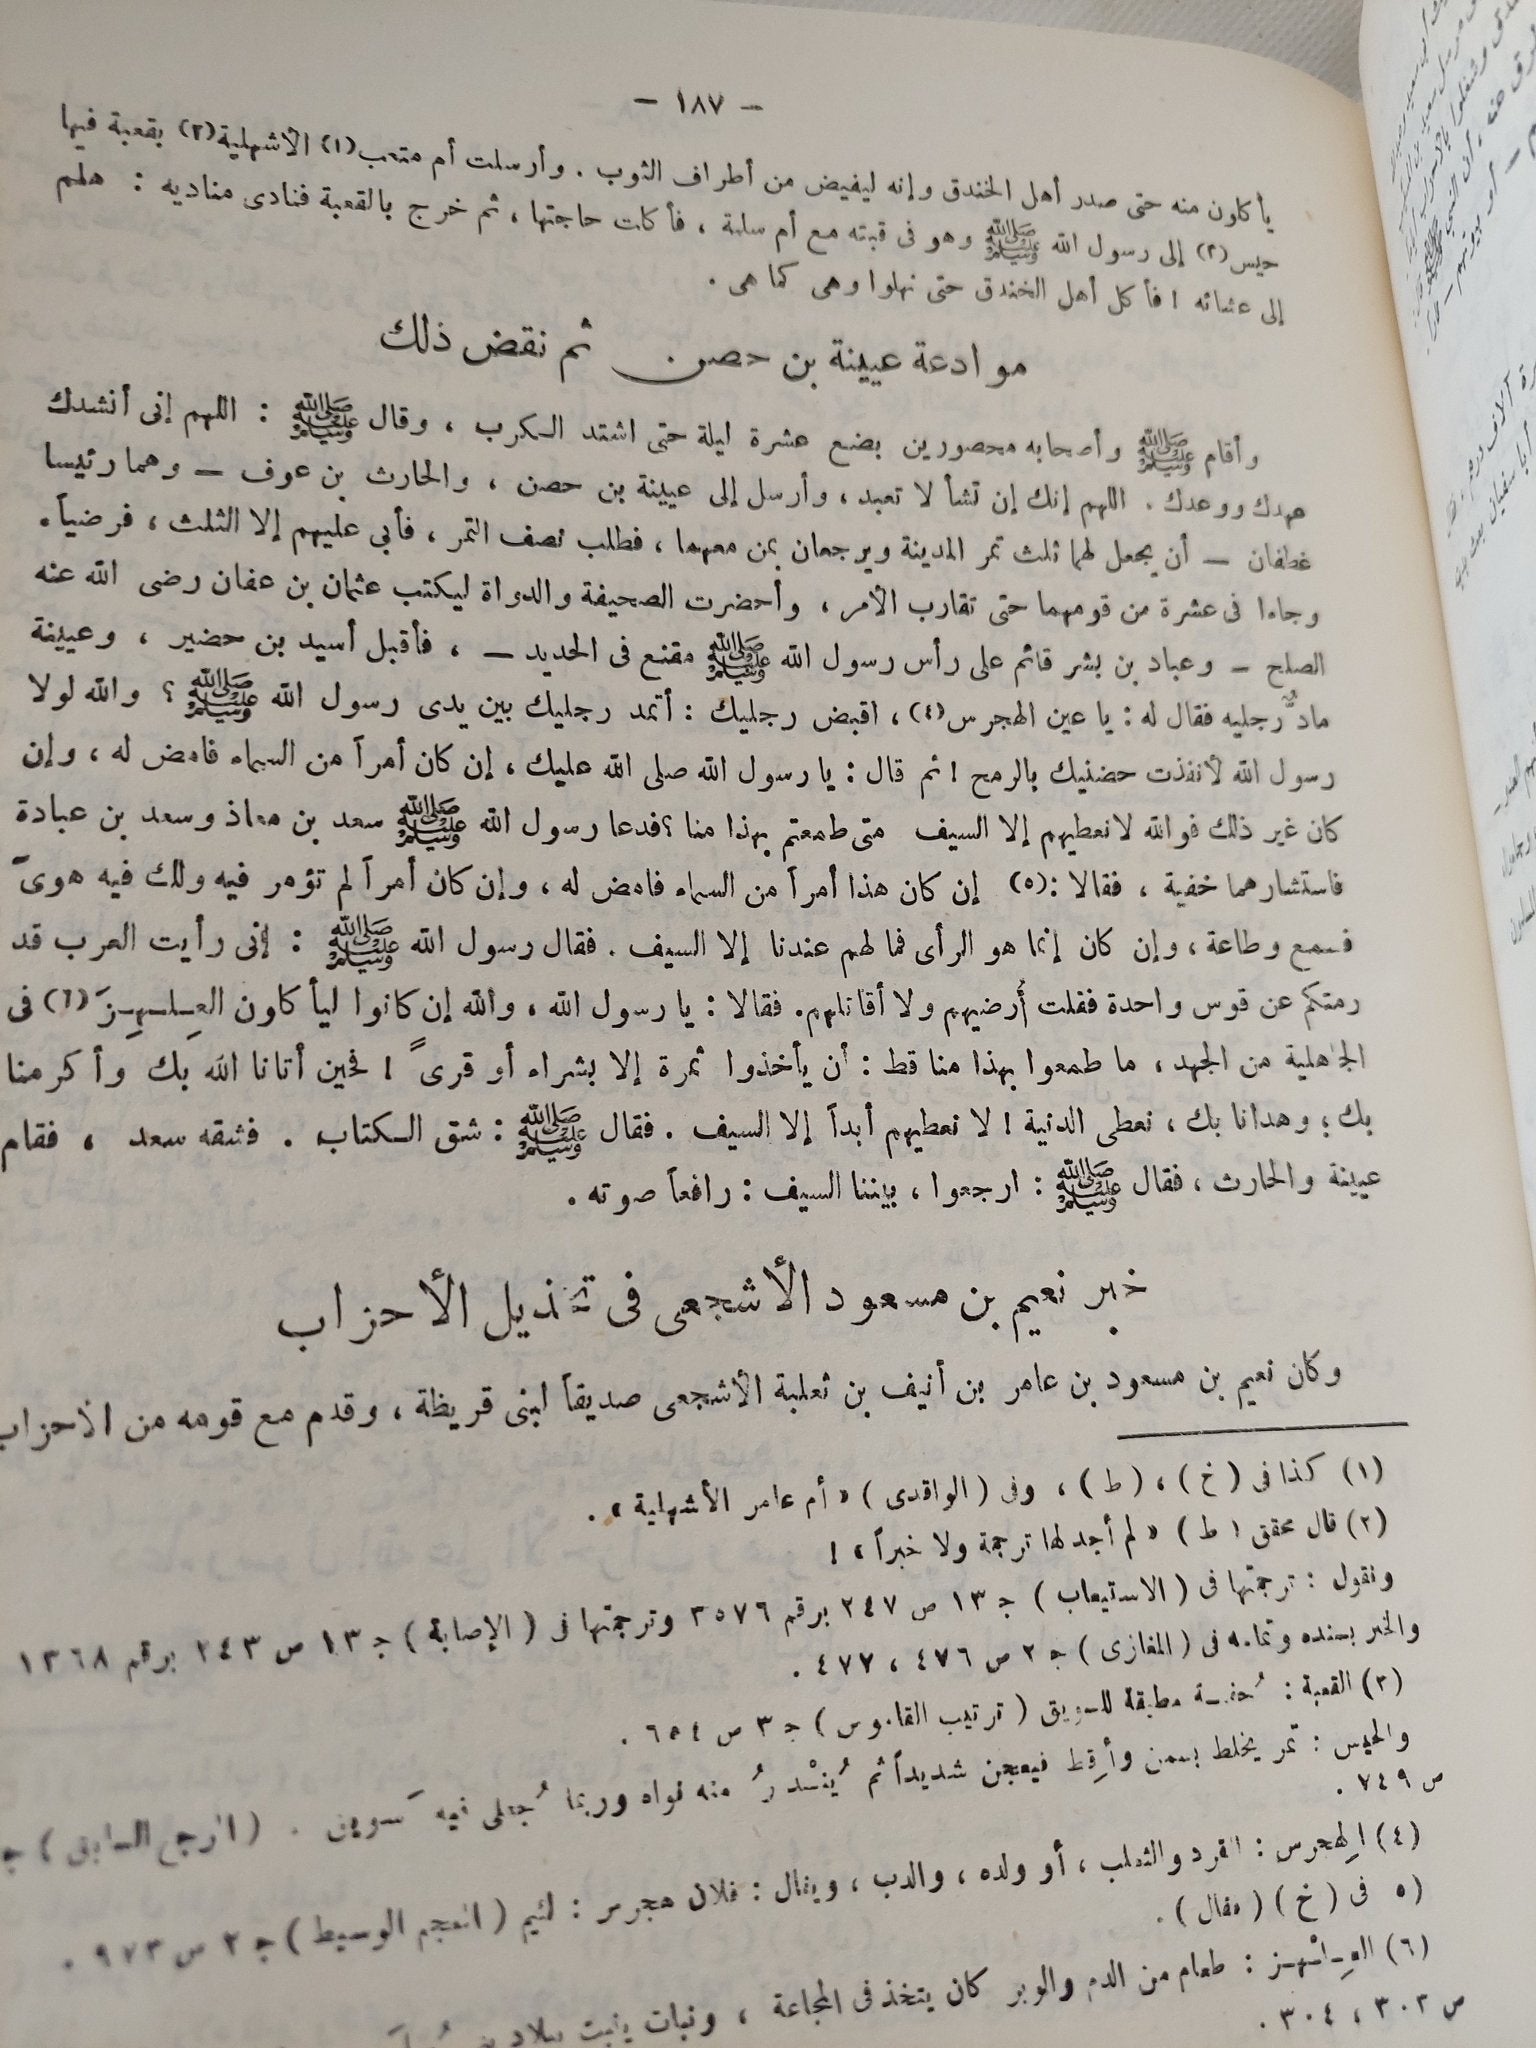 — ١٨٧ —
يأكلون منه حتى صدر أهل الخندق وإنه ليفيض من أطراف الثوب . وأرسلت أم متعب(١) الأشهلية(٢) بقعبة فيها
حيس(٣) إلى رسول الله ﷺ وهو فى قبته مع أم سلمة ، فأكلت حاجتها ، ثم خرج بالقعبة فنادى مناديه : هلم
إلى عشائه ! فأكل أهل الخندق حتى نهلوا وهى كما هى .
موادعة عيينة بن حصن . ثم نقض ذلك
وأقام ﷺ وأصحابه محصورين بضع عشرة ليلة حتى اشتد الكرب ، وقال ﷺ : اللهم إنى أنشدك
عهدك ووعدك . اللهم إنك إن تشأ لا تعبد ، وأرسل إلى عيينة بن حصن ، والحارث بن عوف — وهما رئيسا
غطفان — أن يجعل لهما ثلث تمر المدينة ويرجعان بمن معهما ، فطلب نصف التمر ، فأبى عليهم إلا الثلث ، فرضياً.
وجاءا فى عشرة من قومهما حتى تقارب الأمر ، وأحضرت الصحيفة والدواة ليكتب عثمان بن عفان رضى الله عنه
الصلح — وعباد بن بشر قائم على رأس رسول الله ﷺ مقنع فى الحديد — ، فأقبل أسيد بن حضير ، وعيينة
مادٌّ رجليه فقال له : يا عين الهجرس(٤) ، اقبض رجليك : أتمد رجليك بين يدى رسول الله ﷺ ؟ والله لولا
رسول الله لأنفذت حضنيك بالرمح ! ثم قال : يا رسول الله صلى الله عليك ، إن كان أمراً من السماء فامض له ، وإن
كان غير ذلك فوالله لا نعطيهم إلا السيف متى طمعتم بهذا منا ؟ فدعا رسول الله ﷺ سعد بن معاذ وسعد بن عبادة
فاستشارهما خفية ، فقالا :(٥) إن كان هذا أمراً من السماء فامض له ، وإن كان أمراً لم تؤمر فيه ولك فيه هوىً
فسمع وطاعة ، وإن كان إنما هو الرأى فما لهم عندنا إلا السيف . فقال رسول الله ﷺ : إنى رأيت العرب قد
رمتكم عن قوس واحدة فقلت أُرضيهم ولا أقاتلهم. فقالا : يا رسول الله ، والله إن كانوا ليأكلون العِلْهِزَ(٦) فى
الجاهلية من الجهد ، ما طمعوا بهذا منا قط : أن يأخذوا ثمرة إلا بشراء أو قرىً ! فحين أتانا الله بك وأكرمنا
بك ؛ وهدانا بك ، نعطى الدنية ! لا نعطيهم أبداً إلا السيف . فقال ﷺ : شق الكتاب . فشقه سعد ، فقام
عيينة والحارث ، فقال ﷺ : ارجعوا ، بيننا السيف : رافعاً صوته .
خبر نعيم بن مسعود الأشجعى فى تخذيل الأحزاب
وكان نعيم بن مسعود بن عامر بن أنيف بن ثعلبة الأشجعى صديقاً لبنى قريظة ، وقدم مع قومه من الأحزاب
(١) كذا فى ( خ ) ، ( ط ) ، وفى ( الواقدى ) « أم عامر الأشهلية » .
(٢) قال محقق ( ط ) « لم أجد لها ترجمة ولا خبراً » !
ونقول : ترجمتها فى ( الاستيعاب ) ج ١٣ ص ٢٤٧ برقم ٣٥٧٦ وترجمتها فى ( الإصابة ) ج ١٣ ص ٢٤٣ برقم ١٣٦٨
والخبر بسنده وتمامه فى ( المغازى ) ج ٢ ص ٤٧٦ ، ٤٧٧ .
(٣) القعبة : حُقـة مطبقة للسويق ( ترتيب القاموس ) ج ٣ ص ٦٥٤ .
والحيس : تمر يخلط بسمن وأقِط فيعجن شديداً ثم يُنْدرُ منه نواه وربما جُعل فيه سَويق . ( المرجع السابق ) ج
ص ٧٤٩ .
(٤) الهِجرس : القرد والثعلب ، أو ولده ، والدب ، ويقال : فلان هجرس : لئيم ( المعجم الوسيط ) ج ٢ ص ٩٧٣ .
(٥ فى ( خ ) ( فقال ) .
(٦) العِلْهِز : طعام من الدم والوبر كان يتخذ فى المجاعة ، ونبات ينبت ببلاد بنى
ص ٣٠٣ ، ٣٠٤ .